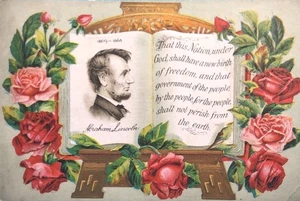 1809-1865
Abraham Lincoln
That this Nation, under
God, shall have a new birth
of freedom, and that
government of the people,
by the people, for the people,
shall not perish from
the earth.